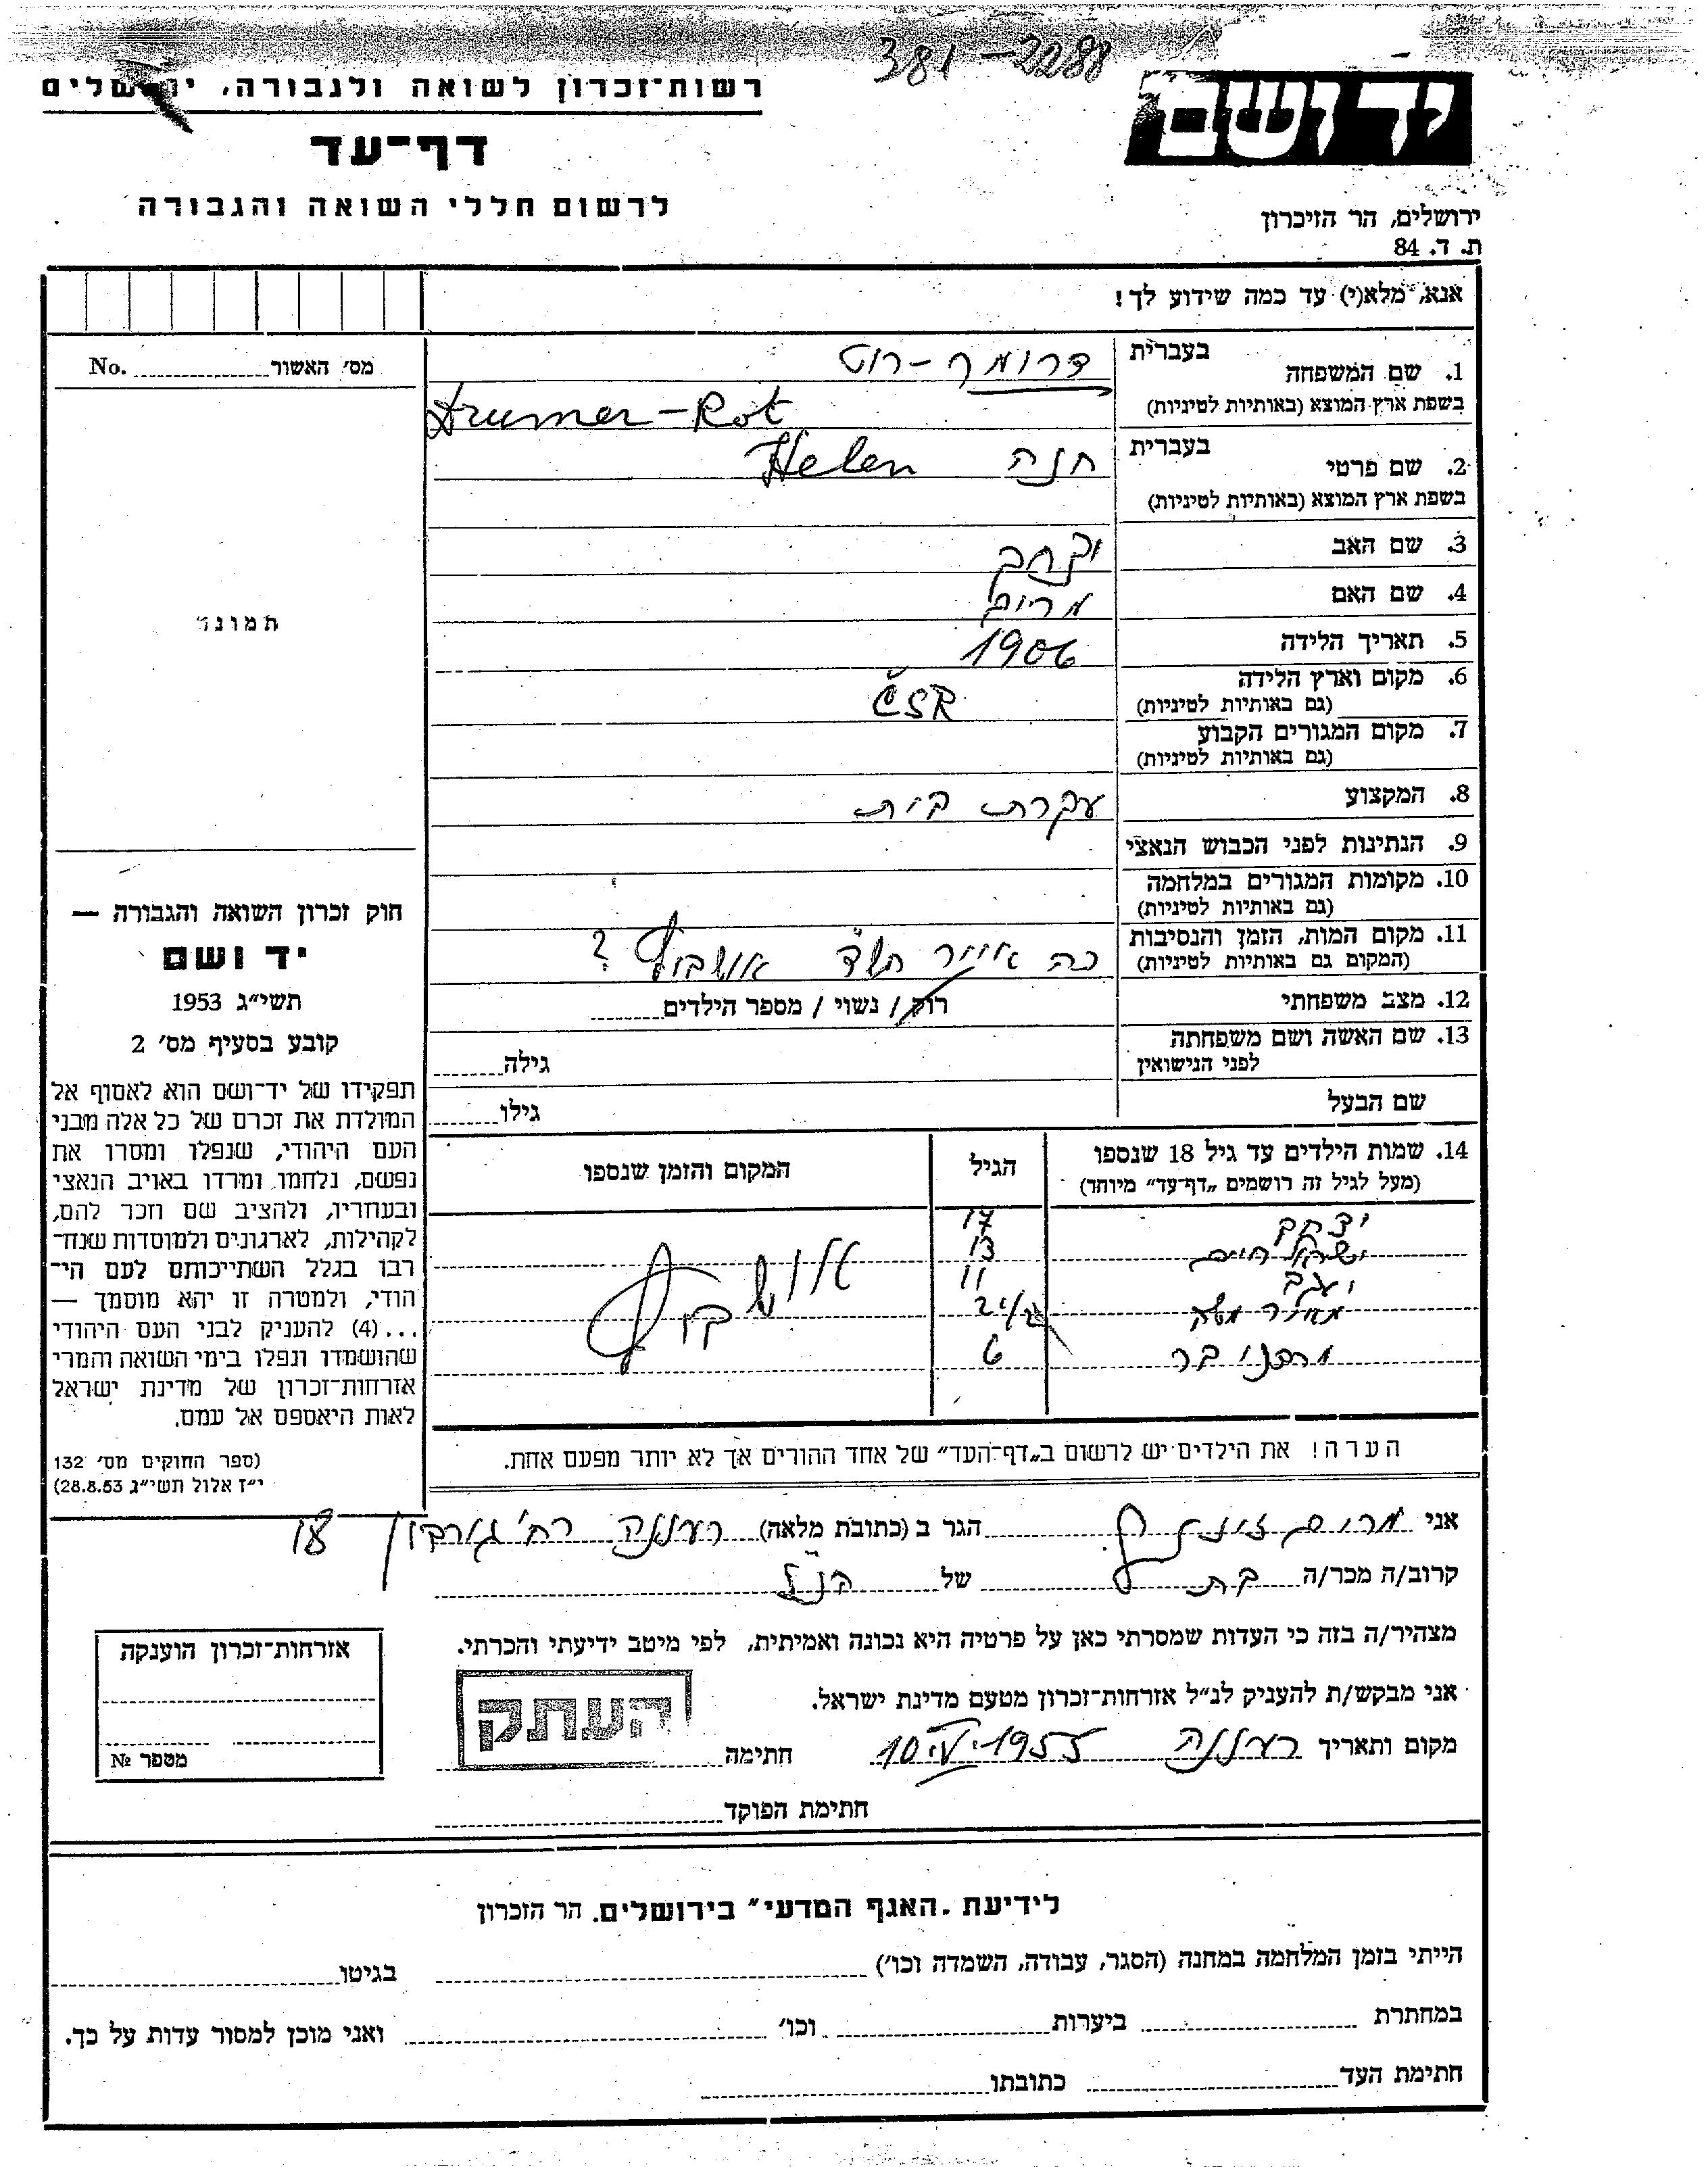 381-2288
יד ושם
רשות־זכרון לשואה ולגבורה, ירושלים
דף־עד
לרשום חללי השואה והגבורה
ירושלים, הר הזיכרון
ת. ד. 84
אנא, מלא(י) עד כמה שידוע לך!
מס' האשור No.
תמונה
1. שם המשפחה בעברית דרומר-רוט
בשפת ארץ המוצא (באותיות לטיניות) Drumer-Rot
2. שם פרטי בעברית חנה Helen
בשפת ארץ המוצא (באותיות לטיניות)
3. שם האב
4. שם האם מרים
5. תאריך הלידה 1906
6. מקום וארץ הלידה ČSR
(גם באותיות לטיניות)
7. מקום המגורים הקבוע
(גם באותיות לטיניות)
8. המקצוע עקרת בית
9. הנתינות לפני הכבוש הנאצי
10. מקומות המגורים במלחמה
(גם באותיות לטיניות)
11. מקום המות, הזמן והנסיבות כה אייר תש"ד אושביץ ?
(המקום גם באותיות לטיניות)
12. מצב משפחתי רווק / נשוי / מספר הילדים
13. שם האשה ושם משפחתה
לפני הנישואין גילה
שם הבעל גילו
14. שמות הילדים עד גיל 18 שנספו הגיל המקום והזמן שנספו
(מעל לגיל זה רושמים „דף־עד" מיוחד)
יצחק 17
ישראל חיים 13
יעקב 11 אושביץ
משה
6
הערה! את הילדים יש לרשום ב„דף־העד" של אחד ההורים אך לא יותר מפעם אחת.
חוק זכרון השואה והגבורה —
יד ושם
תשי"ג 1953
קובע בסעיף מס' 2
תפקידו של יד־ושם הוא לאסוף אל
המולדת את זכרם של כל אלה מבני
העם היהודי, שנפלו ומסרו את
נפשם, נלחמו ומרדו באויב הנאצי
ובעוזריו, ולהציב שם וזכר להם,
לקהילות, לארגונים ולמוסדות שנח־
רבו בגלל השתייכותם לעם הי־
הודי, ולמטרה זו יהא מוסמך —
...(4) להעניק לבני העם היהודי
שהושמדו ונפלו בימי השואה והמרי
אזרחות־זכרון של מדינת ישראל
לאות היאספם אל עמם.
(ספר החוקים מס' 132
י"ז אלול תשי"ג 28.8.53)
אני מרים הגר ב (כתובת מלאה) רעננה רח' גורדון 18
קרוב/ה מכר/ה בת של הנ"ל
מצהיר/ה בזה כי העדות שמסרתי כאן על פרטיה היא נכונה ואמיתית, לפי מיטב ידיעתי והכרתי.
אני מבקש/ת להעניק לנ"ל אזרחות־זכרון מטעם מדינת ישראל.
מקום ותאריך רעננה 10.V.1955 חתימה
העתק
חתימת הפוקד
אזרחות־זכרון הוענקה
מספר №
לידיעת „האגף המדעי" בירושלים, הר הזכרון
הייתי בזמן המלחמה במחנה (הסגר, עבודה, השמדה וכו') בגיטו
במחתרת ביערות וכו' ואני מוכן למסור עדות על כך.
חתימת העד כתובתו